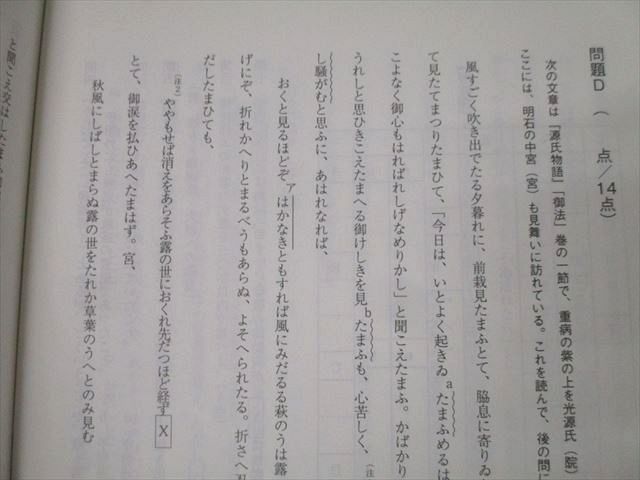 問題D ( 点/14点)
次の文章は『源氏物語』「御法」巻の一節で、重病の紫の上を光源氏(院)
ここには、明石の中宮(宮)も見舞いに訪れている。これを読んで、後の問に
風すごく吹き出でたる夕暮れに、前栽見たまふとて、脇息に寄りゐ
て見たてまつりたまひて、「今日は、いとよく起きゐaたまふめるは
こよなく御心もはればれしげなめりかし」と聞こえたまふ。かばかり
うれしと思ひきこえたまへる御けしきを見bたまふも、心苦しく、(注
し騒がむと思ふに、あはれなれば、
おくと見るほどぞアはかなきともすれば風にみだるる萩のうは露
げにぞ、折れかへりとまるべうもあらぬ、よそへられたる。折さへ
だしたまひても、
(注2)ややもせば消えをあらそふ露の世におくれ先だつほど経ずX
とて、御涙を払ひあへたまはず。宮、
秋風にしばしとまらぬ露の世をたれか草葉のうへとのみ見む
と聞こえ交はしたまふ